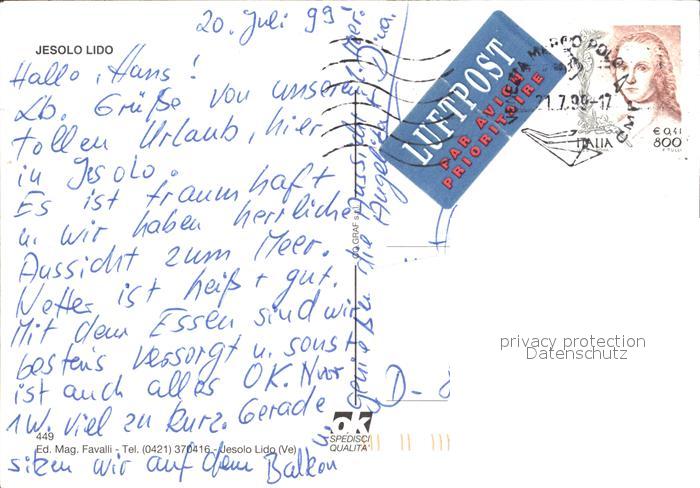 20. Juli 99
JESOLO LIDO
Hallo, Hans!
Lb. Grüße von unserem
tollen Urlaub, hier
in Jesolo.
Es ist traumhaft
u. wir haben herrliche
Aussicht zum Meer.
Wetter ist heiß + gut.
Mit dem Essen sind wir
bestens versorgt u. sonst
ist auch alles OK. Nur
1 W. viel zu kurz. Gerade
449
Ed. Mag. Favalli - Tel. (0421) 370416 - Jesolo Lido (Ve)
sitzen wir auf dem Balkon
u. genießen die Aussicht z. Meer.
Angelika + Dina.
LUFTPOST
PAR AVION
PRIORITAIRE
MARCO POLO
21.7.99-17
€ 0,41
ITALIA 800
D-
ok
SPEDISCI
QUALITA'
privacy protection
Datenschutz